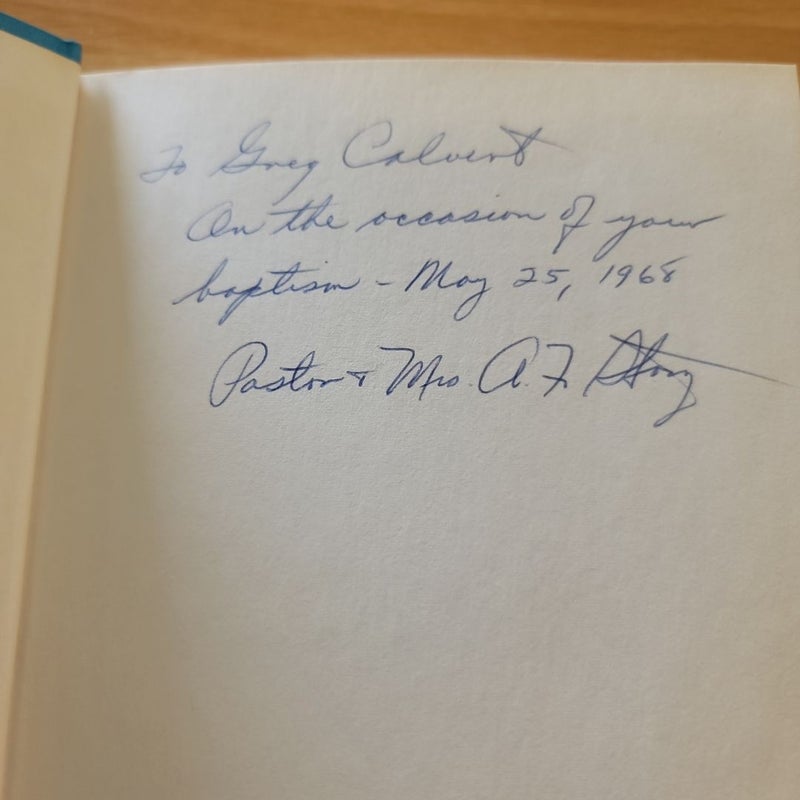 To Greg Calvert
On the occasion of your
baptism - May 25, 1968
Pastor & Mrs. A. F.